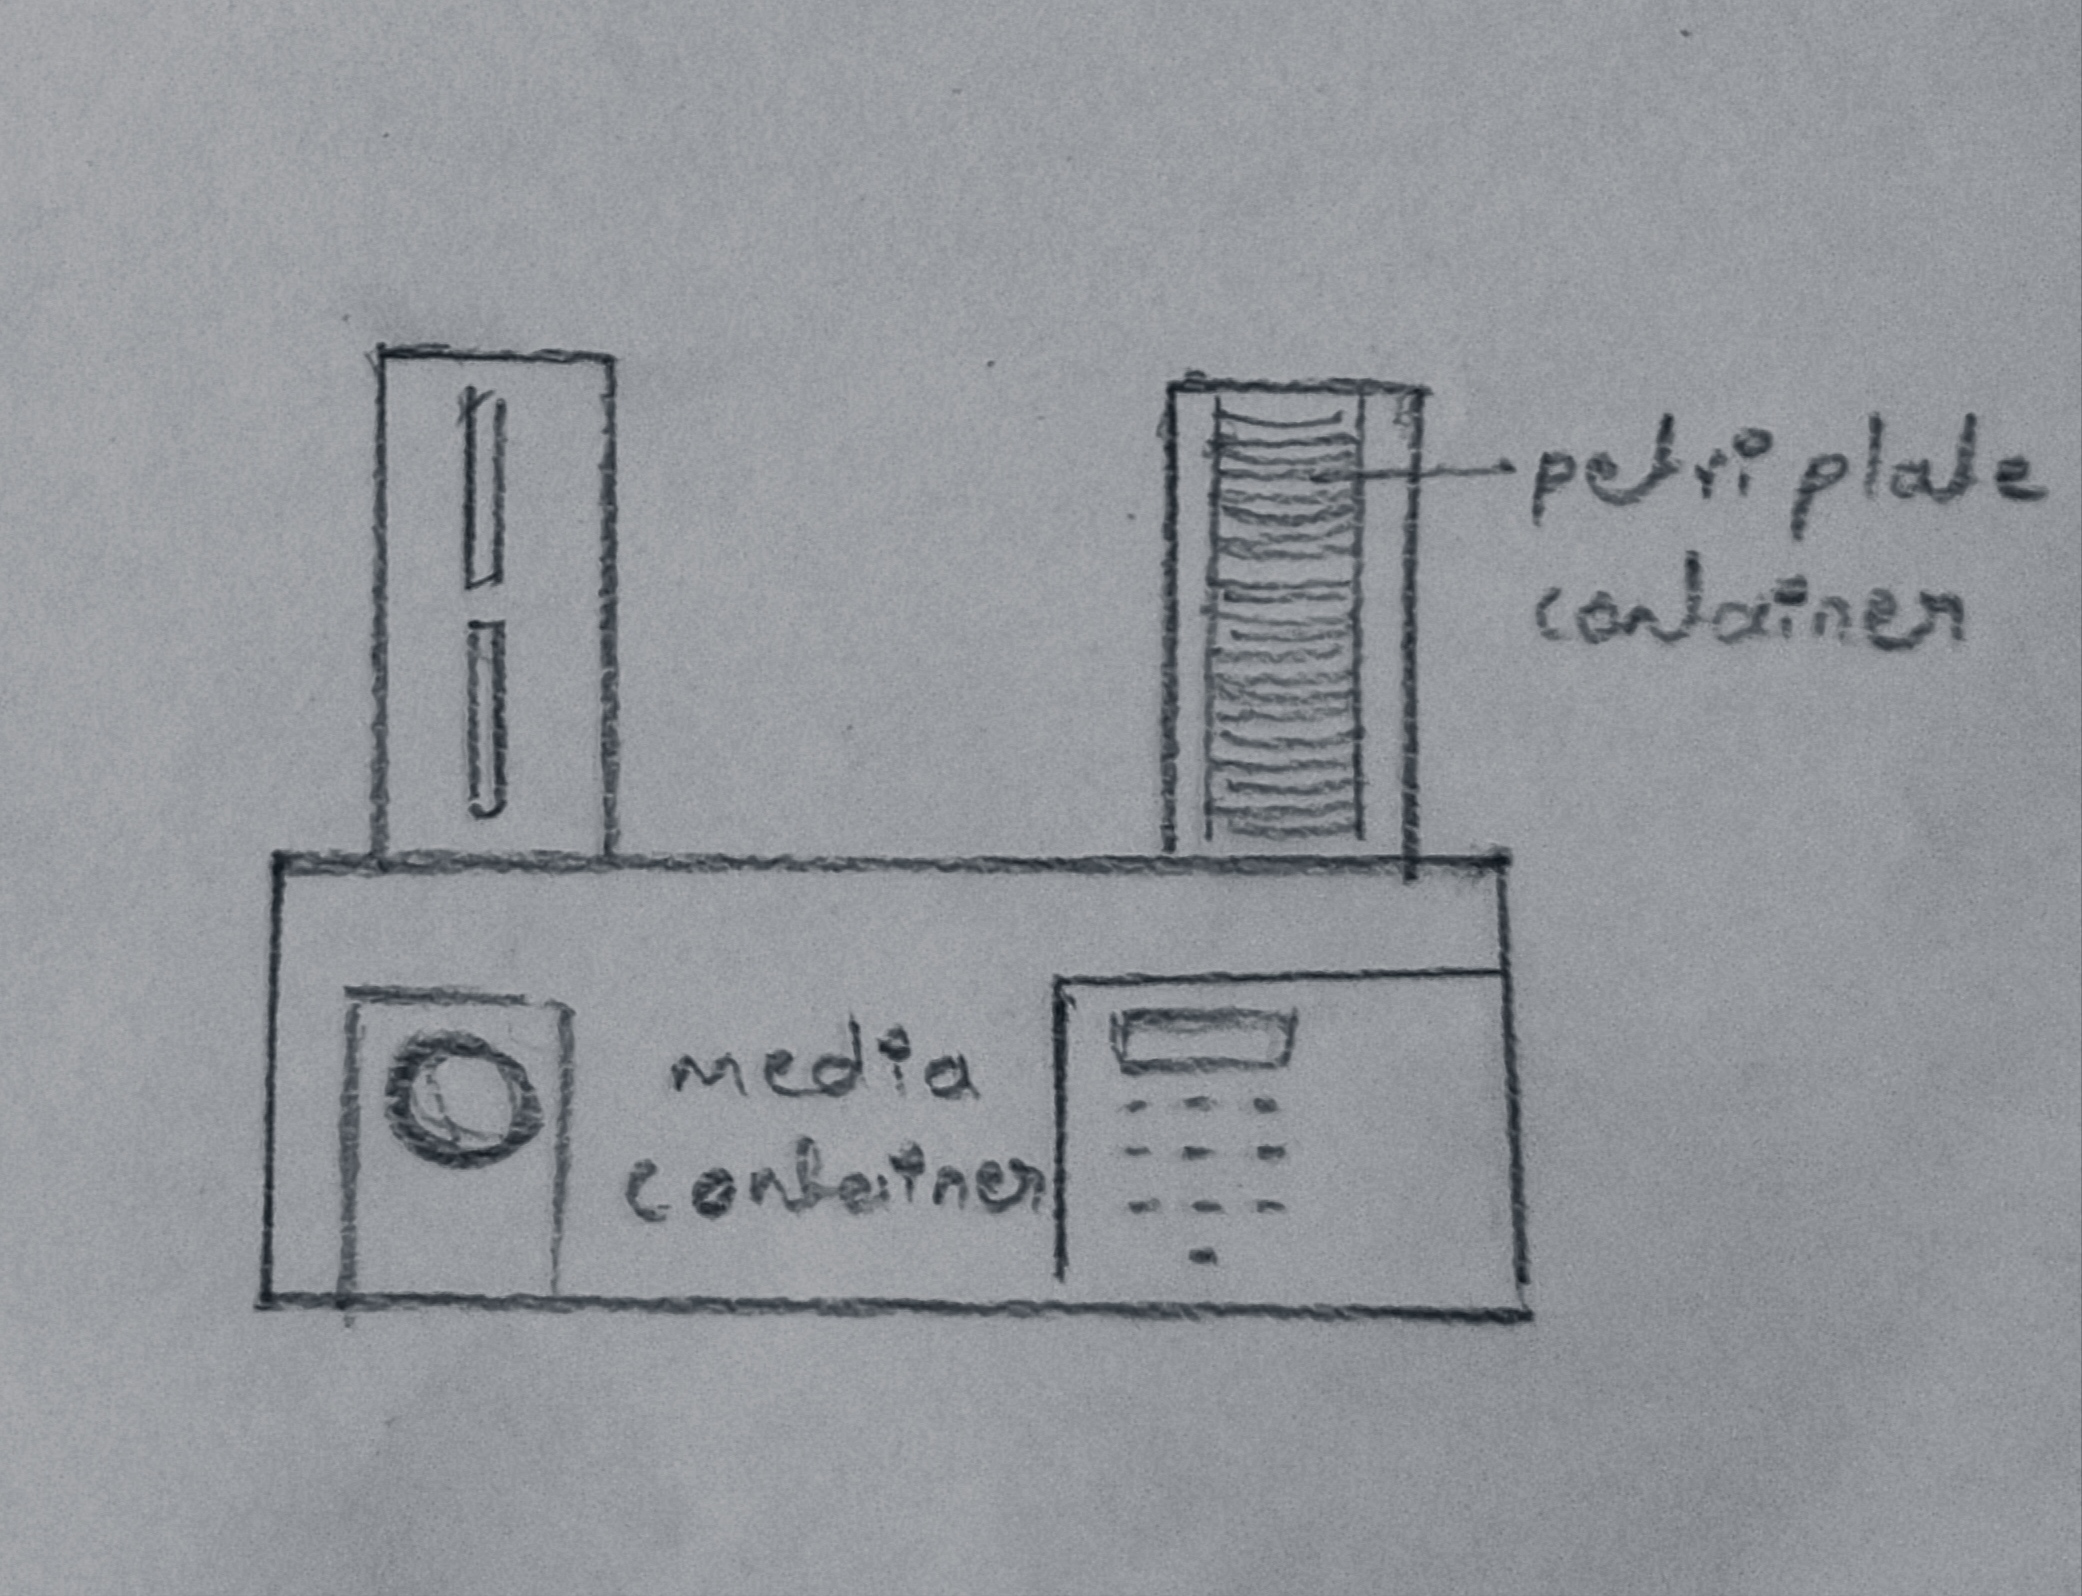 petri plate
container
media
container